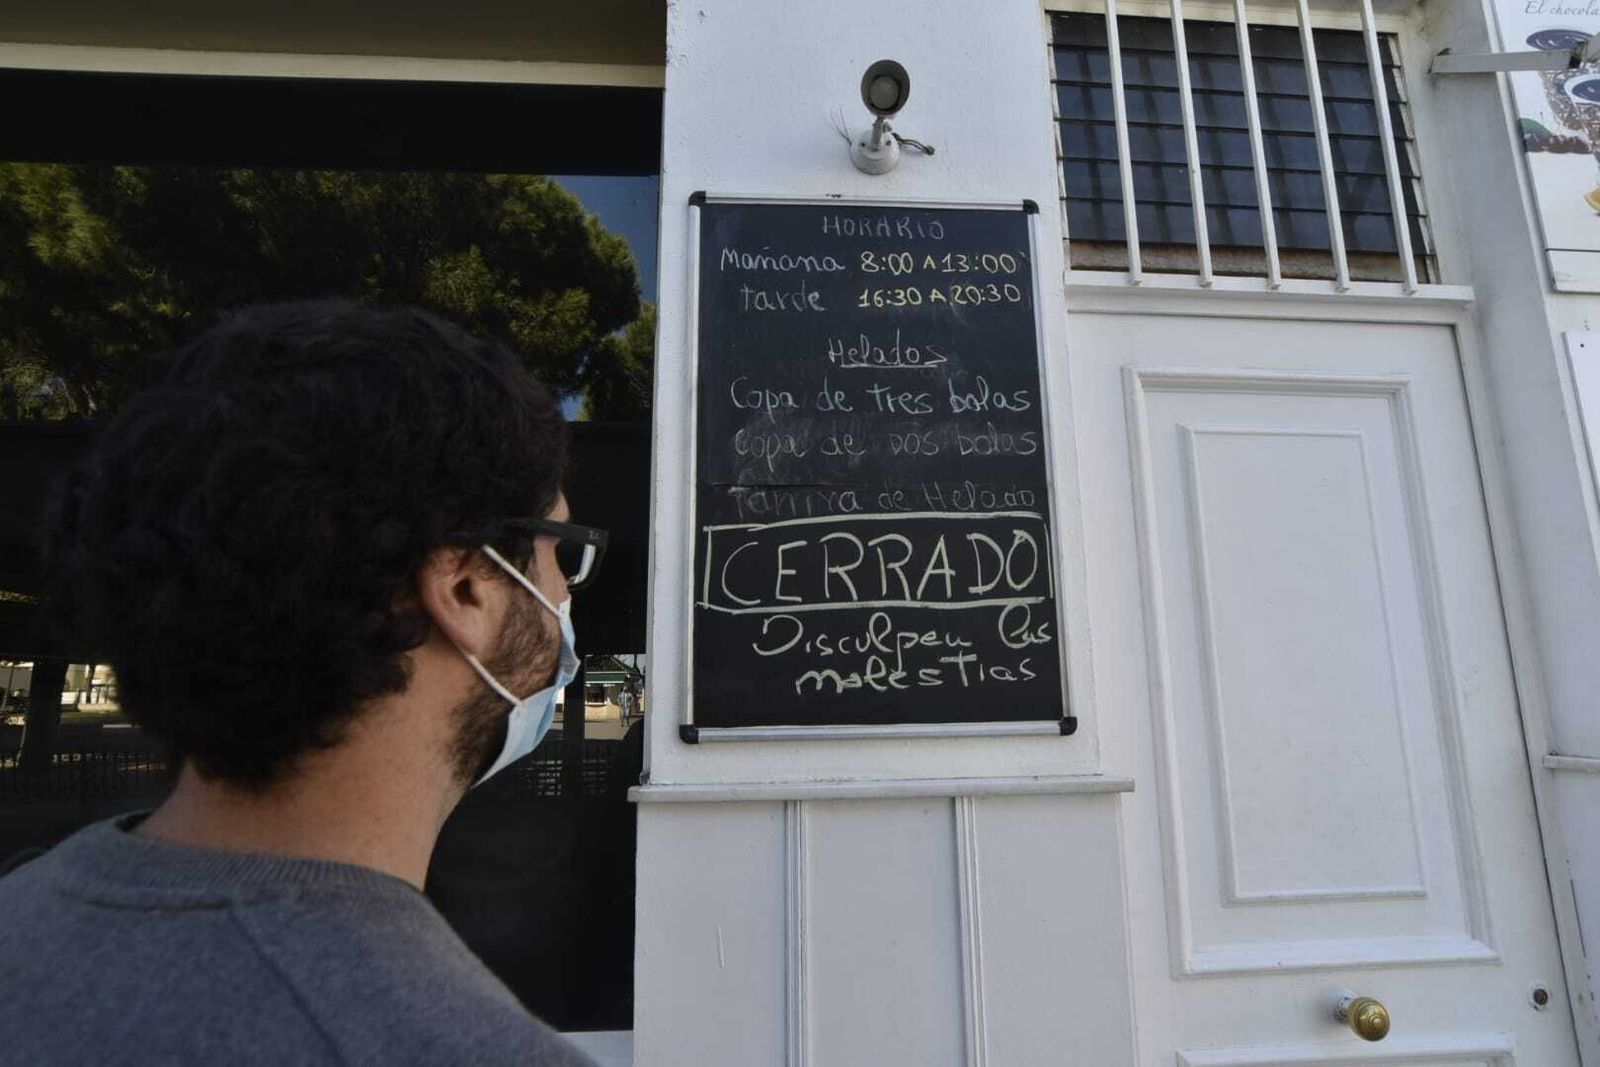 El chocola
HORARIO
Mañana 8:00 A 13:00
tarde 16:30 A 20:30
Helados
Copa de tres bolas
Copa de Dos bolas
de Helado
CERRADO
Disculpen las
molestias